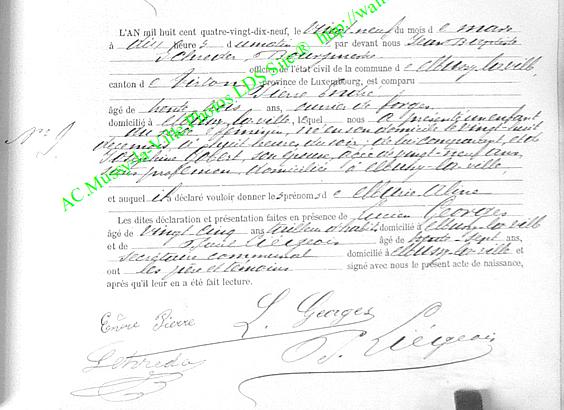 L'AN mil huit cent quatre-vingt-dix-neuf, le vingt-neuf du mois de mars
à dix heures du matin par devant nous Jean Baptiste
Bourgmestre
officier de l'état civil de la commune de Mussy-la-Ville,
canton de Virton province de Luxembourg, est comparu
Pierre
âgé de trente ans, ouvrier de forges
domicilié à Mussy-la-Ville, lequel nous a présenté un enfant
du sexe féminin, né en son domicile le vingt-huit
à huit heures du soir, de lui comparant, et de
son épouse, âgée de vingt-neuf ans,
sans profession, domiciliée à Mussy-la-Ville,
et auquel il a déclaré vouloir donner les prénoms de Marie
Les dites déclaration et présentation faites en présence de Lucien Georges
âgé de vingt cinq ans, domicilié à Mussy-la-Ville
et de Liégeois âgé de trente-sept ans,
secrétaire communal domicilié à Mussy-la-Ville et
ont les père et témoins signé avec nous le présent acte de naissance,
après qu'il leur en a été fait lecture.
N° 9
AC.Mussy-la-Ville Photos LDS Site® http://wal
Pierre
L. Georges
P. Liégeois